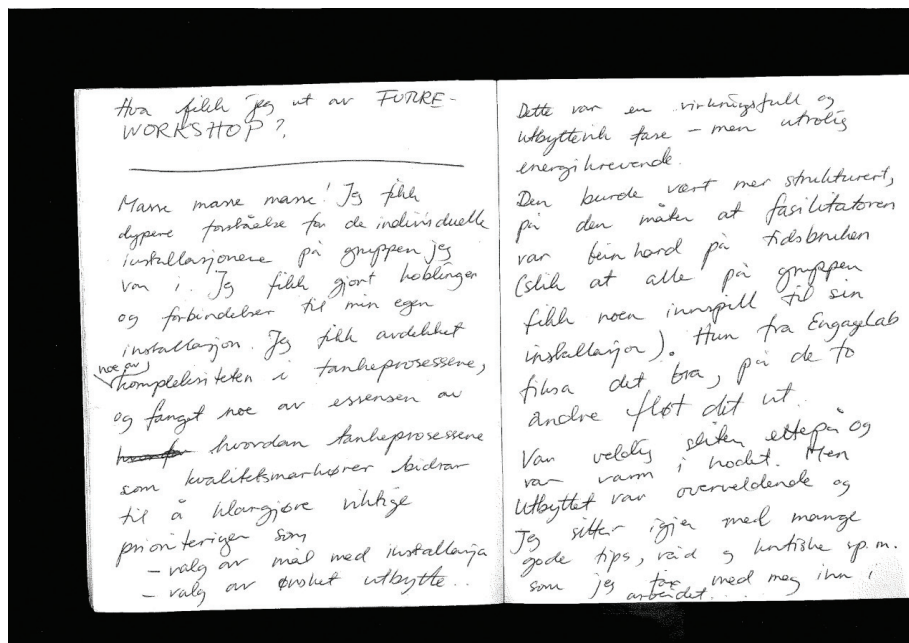 Hva fikk jeg ut av FUTURE-
WORKSHOP?
Masse masse masse! Jeg fikk
dypere forståelse for de individuelle
installasjonene på gruppen jeg
var i. Jeg fikk gjort koblinger
og forbindelser til min egen
installasjon. Jeg fikk avdekket
noe av
kompleksiteten i tankeprosessene,
og fanget noe av essensen av
hvordan tankeprosessene
som kvalitetsmarkører bidrar
til å klargjøre viktige
prioriteringer som
- valg av mål med installasjon
- valg av ønsket utbytte..
Dette var en virkningsfull og
utbytterik fase - men utrolig
energikrevende.
Den burde vært mer strukturert,
på den måten at fasilitatoren
var beinhard på tidsbruken
(slik at alle på gruppen
fikk noen innspill til sin
installasjon). Hun fra EngageLab
fiksa det bra, på de to
andre fløt det ut.
Var veldig sliten etterpå og
var varm i hodet. Men
utbyttet var overveldende og
Jeg sitter igjen med mange
gode tips, råd og kritiske sp.m.
som jeg tar med meg inn i
arbeidet...